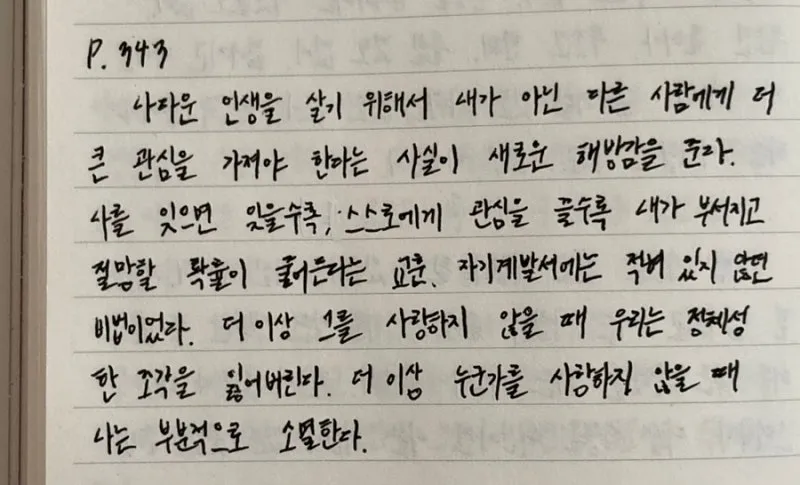 P. 343
나다운 인생을 살기 위해서 내가 아닌 다른 사람에게 더
큰 관심을 가져야 한다는 사실이 새로운 해방감을 준다.
나를 잊으면 잊을수록, 스스로에게 관심을 끌수록 내가 부서지고
절망할 확률이 줄어든다는 교훈. 자기계발서에는 적혀 있지 않던
비법이었다. 더 이상 그를 사랑하지 않을 때 우리는 정체성
한 조각을 잃어버린다. 더 이상 누군가를 사랑하지 않을 때
나는 부분적으로 소멸한다.